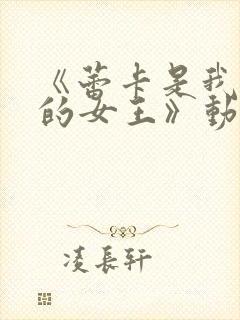 《蕾卡是我
的女王》動
凌長軒